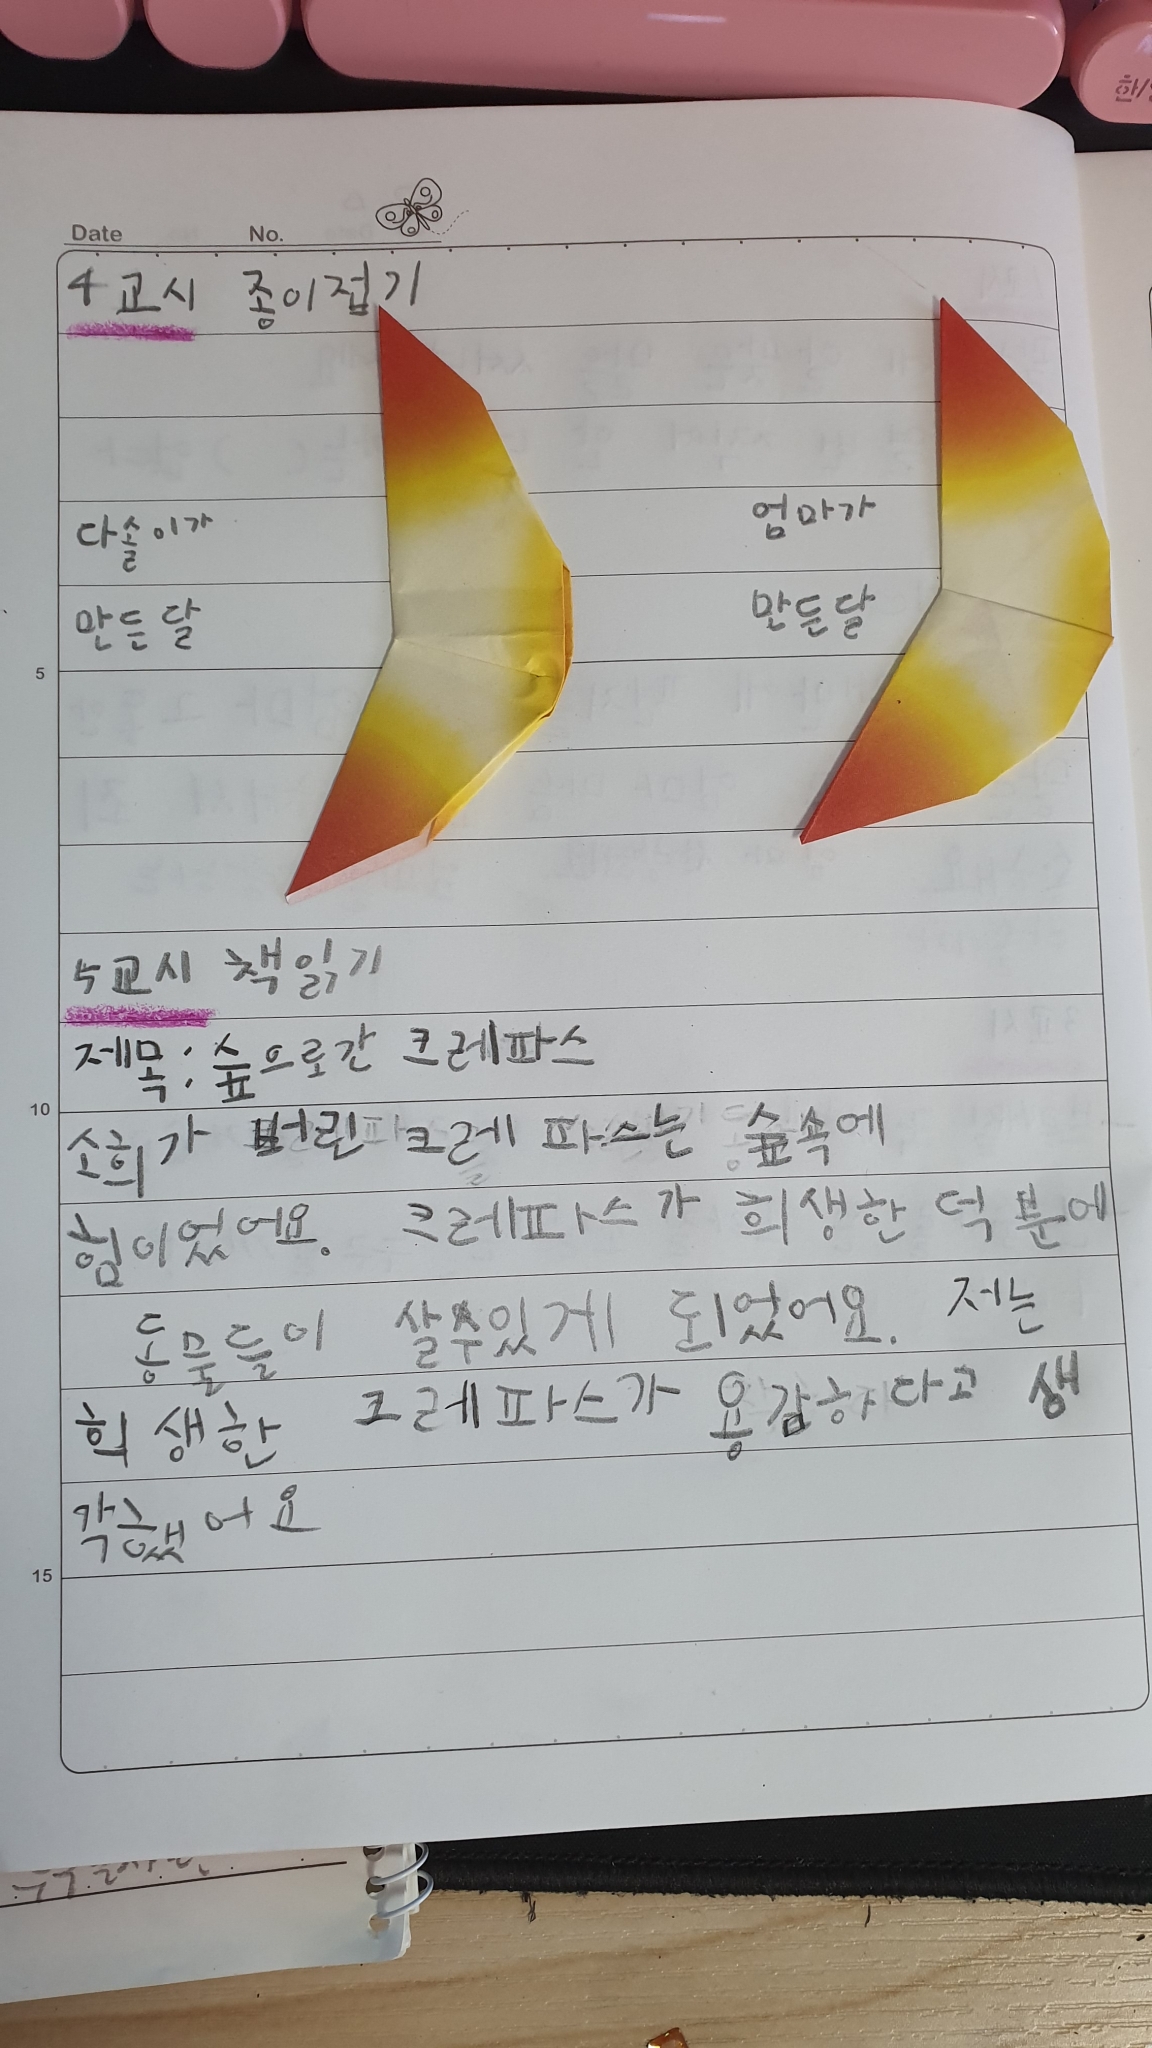 한/영
Date No.
4교시 종이접기
다솔이가
만든달
엄마가
만든달
5
5교시 책읽기
제목: 숲으로간 크레파스
10
소희가 버린 크레파스는 숲속에
힘이었어요. 크레파스가 희생한 덕분에
동물들이 살수있게 되었어요. 저는
희생한 크레파스가 용감하다고 생
각했어요
15